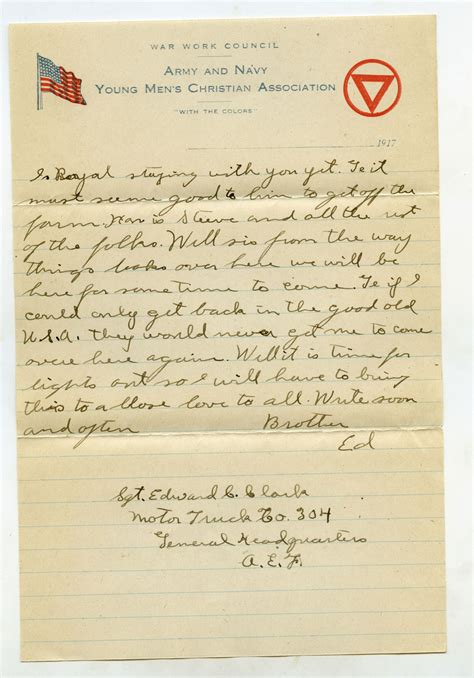 WAR WORK COUNCIL
ARMY AND NAVY
YOUNG MEN'S CHRISTIAN ASSOCIATION
"WITH THE COLORS"
1917
Is Royal staying with you yet. Te it
must seeme good to him to get off the
farm. How is Steeve and all the rest
of the folks. Well sis from the way
things looks over here we will be
here for sometime to come. Te if I
could only get back in the good old
U.S.A. they would never get me to come
over here again. Well it is time for
lights out so I will have to bring
this to a close love to all. Write soon
and often Brother
Ed
Sgt. Edward C. Clark
Motor Truck Co. 304
General Headquarters
A.E.F.